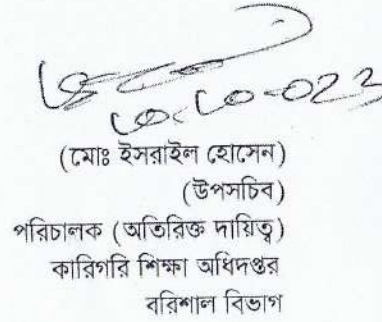 (মোঃ ইসরাইল হোসেন)
(উপসচিব)
পরিচালক (অতিরিক্ত দায়িত্ব)
কারিগরি শিক্ষা অধিদপ্তর
বরিশাল বিভাগ